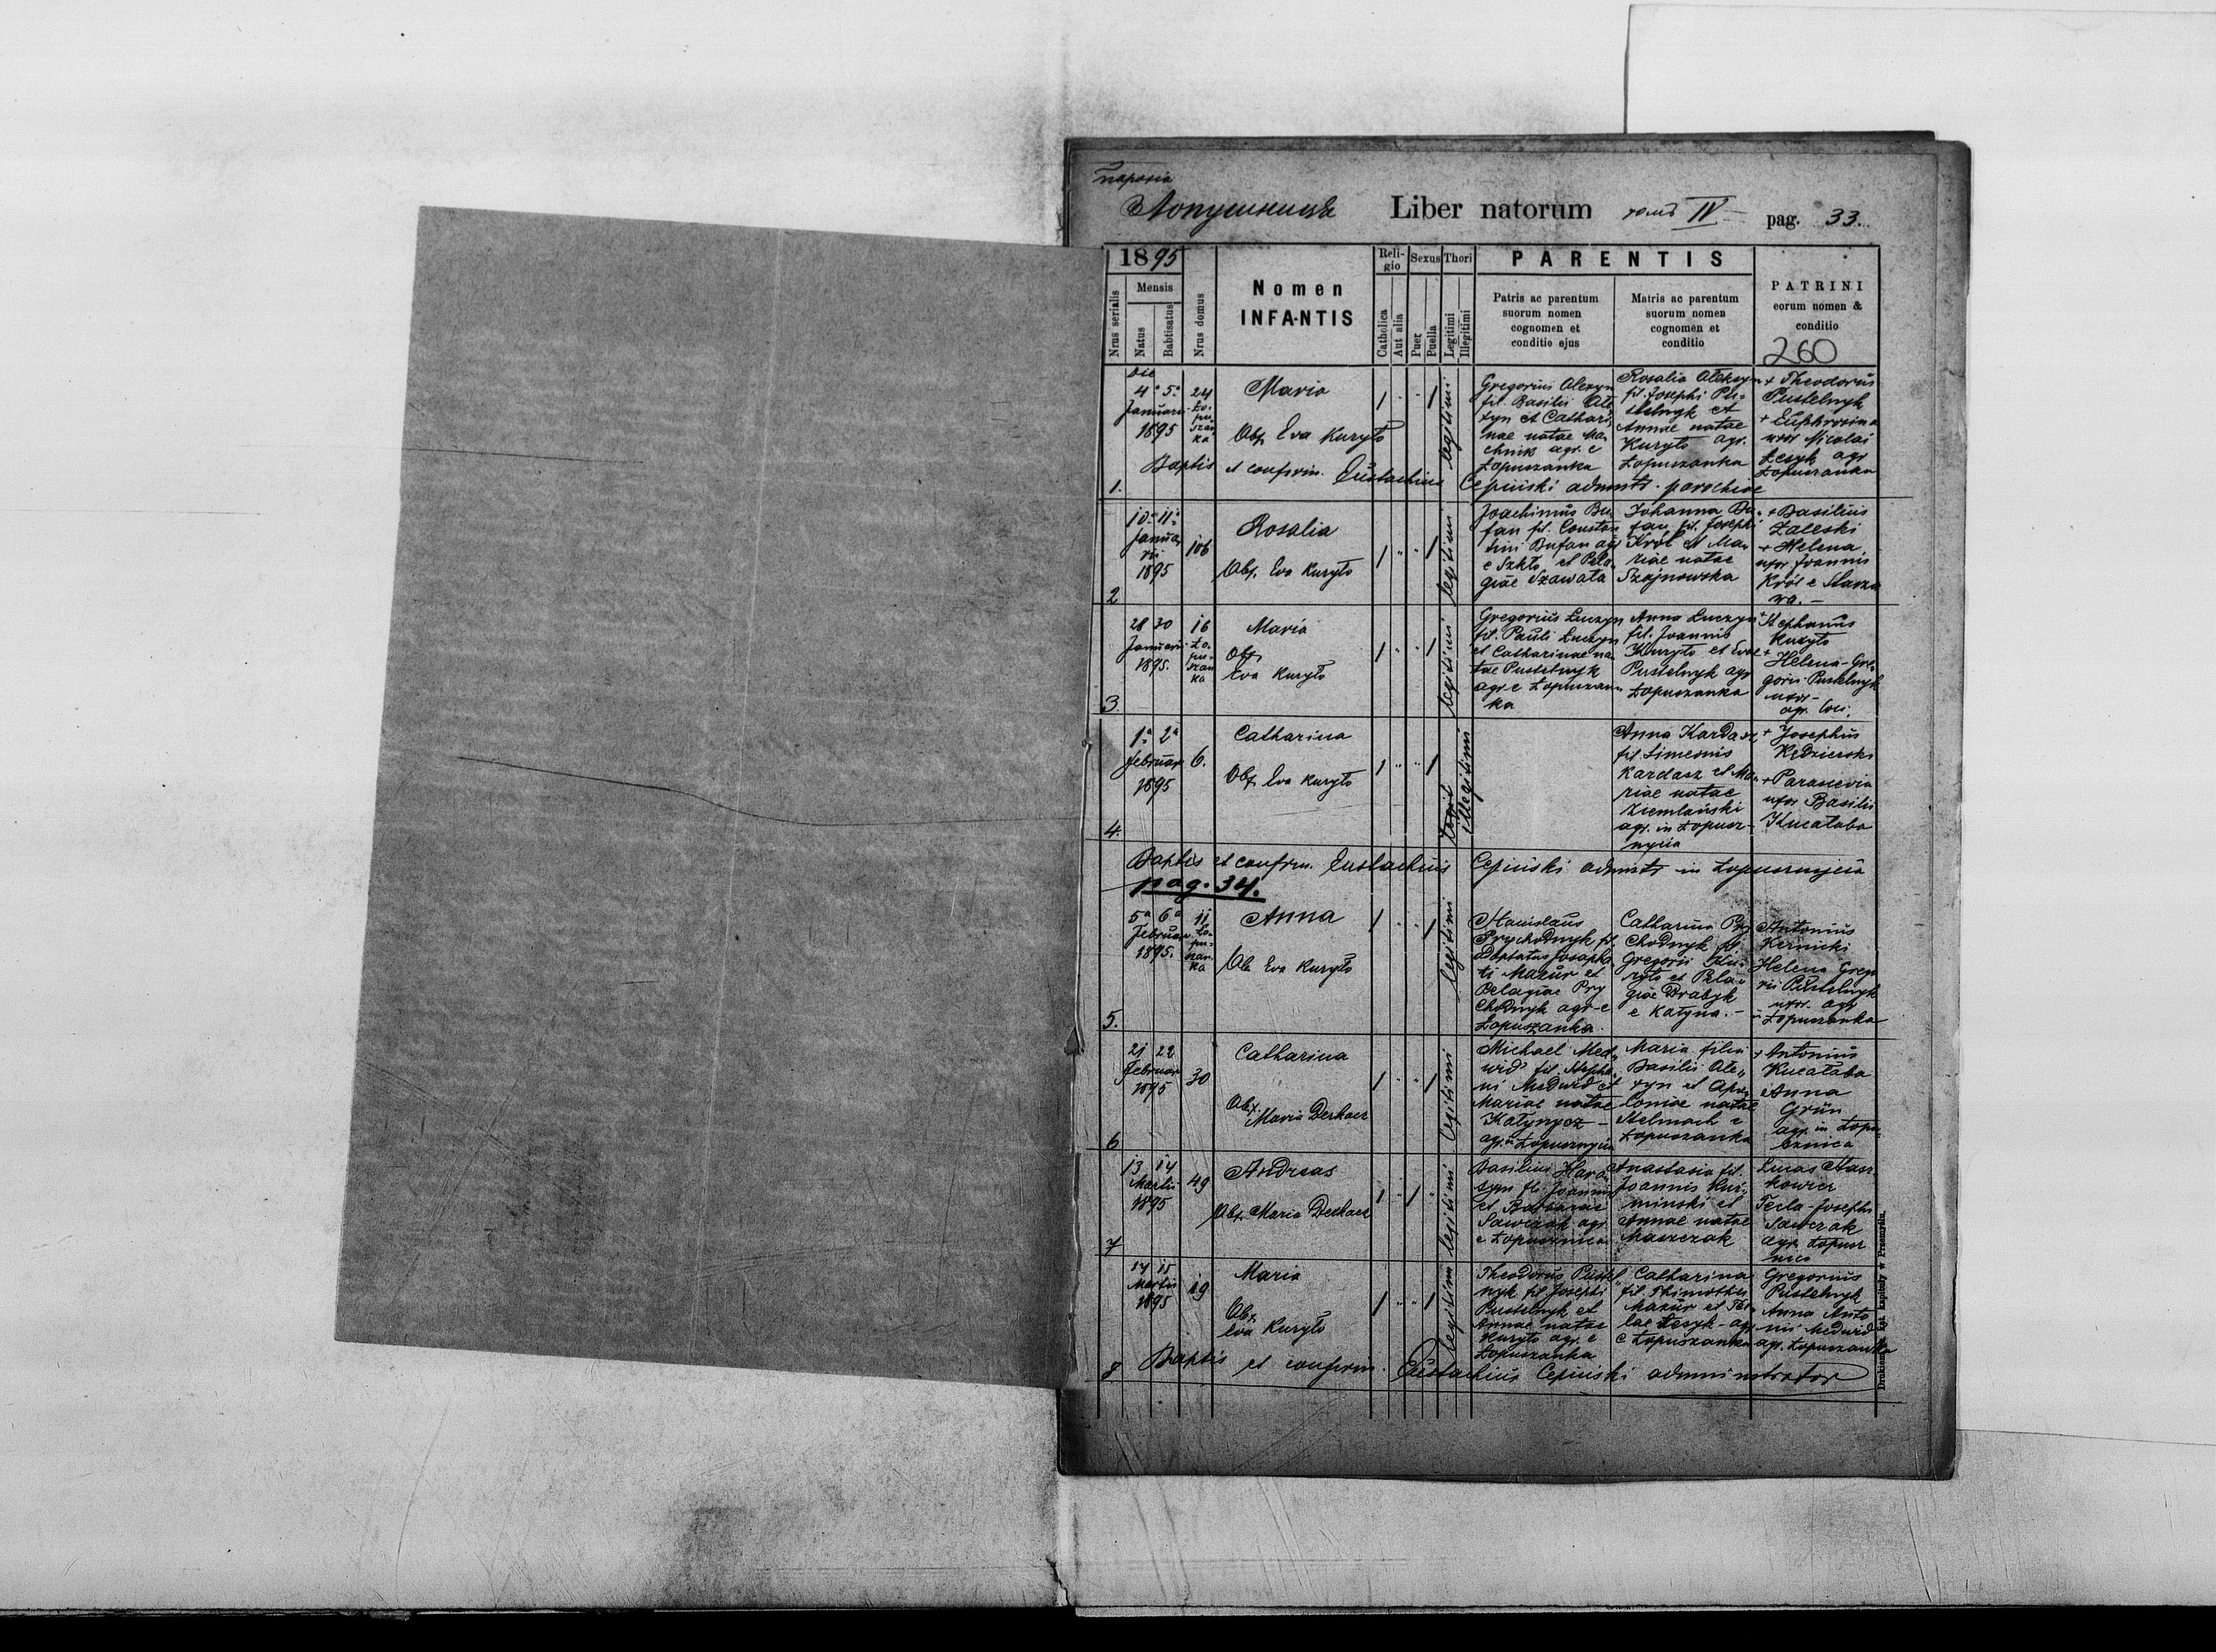 парохія
Лопушниця Liber natorum томъ IV pag. 33.
1895
Nrus serialis
Mensis
Natus
Babtisatus
Nrus domus
Nomen
INFANTIS
Reli-
gio
Catholica
Aut alia
Sexus
Puer
Puella
Thori
Legitimi
Illegitimi
PARENTIS
Patris ac parentum
suorum nomen
cognomen et
conditio ejus
Matris ac parentum
suorum nomen
cognomen et
conditio
PATRINI
eorum nomen &
conditio
260
1.
Die
4a 5a
Januarii
1895
24
Ło-
pu-
szan
ka
Maria
Obs. Eva Kuryło
1 " " 1
legitimi
Gregorius Alexyn
fil. Basilii Ale
xyn et Cathari,
nae natae Ma,
chnik agr. e
Łopuszanka
Rosalia Aleksyn
fil. Josephi Pu-
stelnyk et
Annae natae
Kuryło agr.
Łopuszanka
+ Theodorus
Pustelnyk
+ Euphrosina
uxor Nicolai
Łesyk agr
Łopuszanka
Baptis et confirm. Eustachius Cepiński admnstr. parochiae
2
10a 11a
Janua,
rii
1895
106
Rosalia
Obs. Eva Kuryło
1 " " 1
legitimi
Joachimus Bu,
fan fil. Constan
tini Bufan agr
e Szkło et Pela
giae Szawała
Johanna Bu,
fan fil. Josephi
Król et Ma,
riae natae
Szajnowska
+ Basilius
Zaleski
+ Helena
uxor Joannis
Król e Starza
wa. –
3.
28 30
Januarii
1895.
16
Ło-
pu-
szan
ka
Maria
Obs
Eva Kuryło
1 " " 1
legitimi
Gregorius Łuczyn
fil. Pauli Łuczyn
et Catharinae na
tae Pustelnyk
agr. e Łopuszan
ka
Anna Łuczyn
fil. Joannis
Kuryło et Evae
Pustelnyk agr
Łopuszanka
+ Stephanus
Kuryło
+ Helena - Gre,
gorii Pustelnyk
uxor -
agr. loci.
4.
1a 2a
Februar
1895
6.
Catharina
Obs. Eva Kuryło
1 " " 1
Illegitimi
Anna Kardasz
fil. Simeonis
Kardasz et Ma,
riae natae
Ziemlański
agr. in Łopusz-
nycia
+ Josephus
Kędzierski
+ Parascevia
uxor Basilii
Kucałaba
Baptis et confirm. Eustachius Cepiński admnstr in Łopusznycia
pag. 34.
5.
5a 6a
Februar
1895.
11
Ło-
pu-
szan-
ka
Anna
Ob. Eva Kuryło
1 " " 1
legitimi
Stanislaus
Prychodnyk fil.
Adoptatus Josapha
ti Mazur et
Pelagiae Pry
chodnyk agr. e
Łopuszanka.
Catharina Pry
chodnyk fil.
Gregorii Ku-
ryło et Pela,
giae Drabyk
e Katyna. –
Antonius
Kernicki
Helena Grego
rii Pustelnyk
uxor. agr
in Łopuszanka
6
21 22
Februar
1895
30
Catharina
Obs.
Maria Derkacz
1 " " 1
legitimi
Michael Med,
wid fil. Stepha,
ni Medwid et
Mariae natae
Kotynycz -
agr. in Łopusznycia
Maria filia
Basilii Ale,
xyn et Apo,
loniae natae
Stelmach e
Łopuszanka
+ Antonius
Kucałaba
+ Anna
Grün
agr. in Łopu,
sznica
7
13 14
Martii
1895
49
Andreas
Obs. Maria Derkacz
1 " 1 "
legitimi
Basilius Hara,
sym fil. Joannis
et Barbarae
Sawczak agr.
e Łopusznica
Anastasia fil.
Joannis Kuź-
miński et
Annae natae
Maszczak
Lucas Stasz
kowicz
Tecla - Josephi
Sawczak
agr. Łopusz
nica
8
14 15
Martii
1895
19
Maria
Obs.
Eva Kuryło
1 " " 1
legitimi
Theodorus Pustel
nyk fil. Josephi
Pustelnyk et
Annae natae
Kuryło agr. e
Łopuszanka
Catharina
fil. Thimothei
Mazur et The,
clae Łesyk - agr.
e Łopuszanka
Gregorius
Pustelnyk
Anna Anto
nii Medwid
agr. Łopuszanka
Baptis et confirm. Eustachius Cepiński administrator
Drukiem gr. kat. kapituły w Przemyślu.